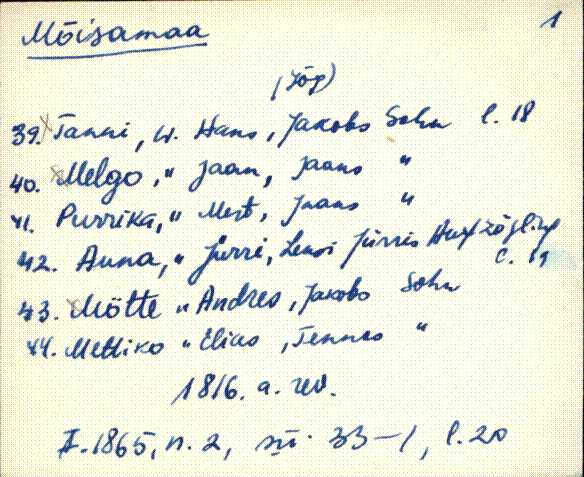 Mõisamaa
1
(Jõg)
39. Tanni, W. Hans, Jakobs Sohn l. 18
40. Melgo, " Jaan, Jaans "
41. Purrika, " Mert, Jaans "
42. Anna, " Jürri, Jürris Aufzögling
l. 19
43. Mötte " Andres, Jakobs Sohn
44. Mettiko " Elias, Tennes "
1816. a. rev.
F. 1865, n. 2, 33-1, l. 20